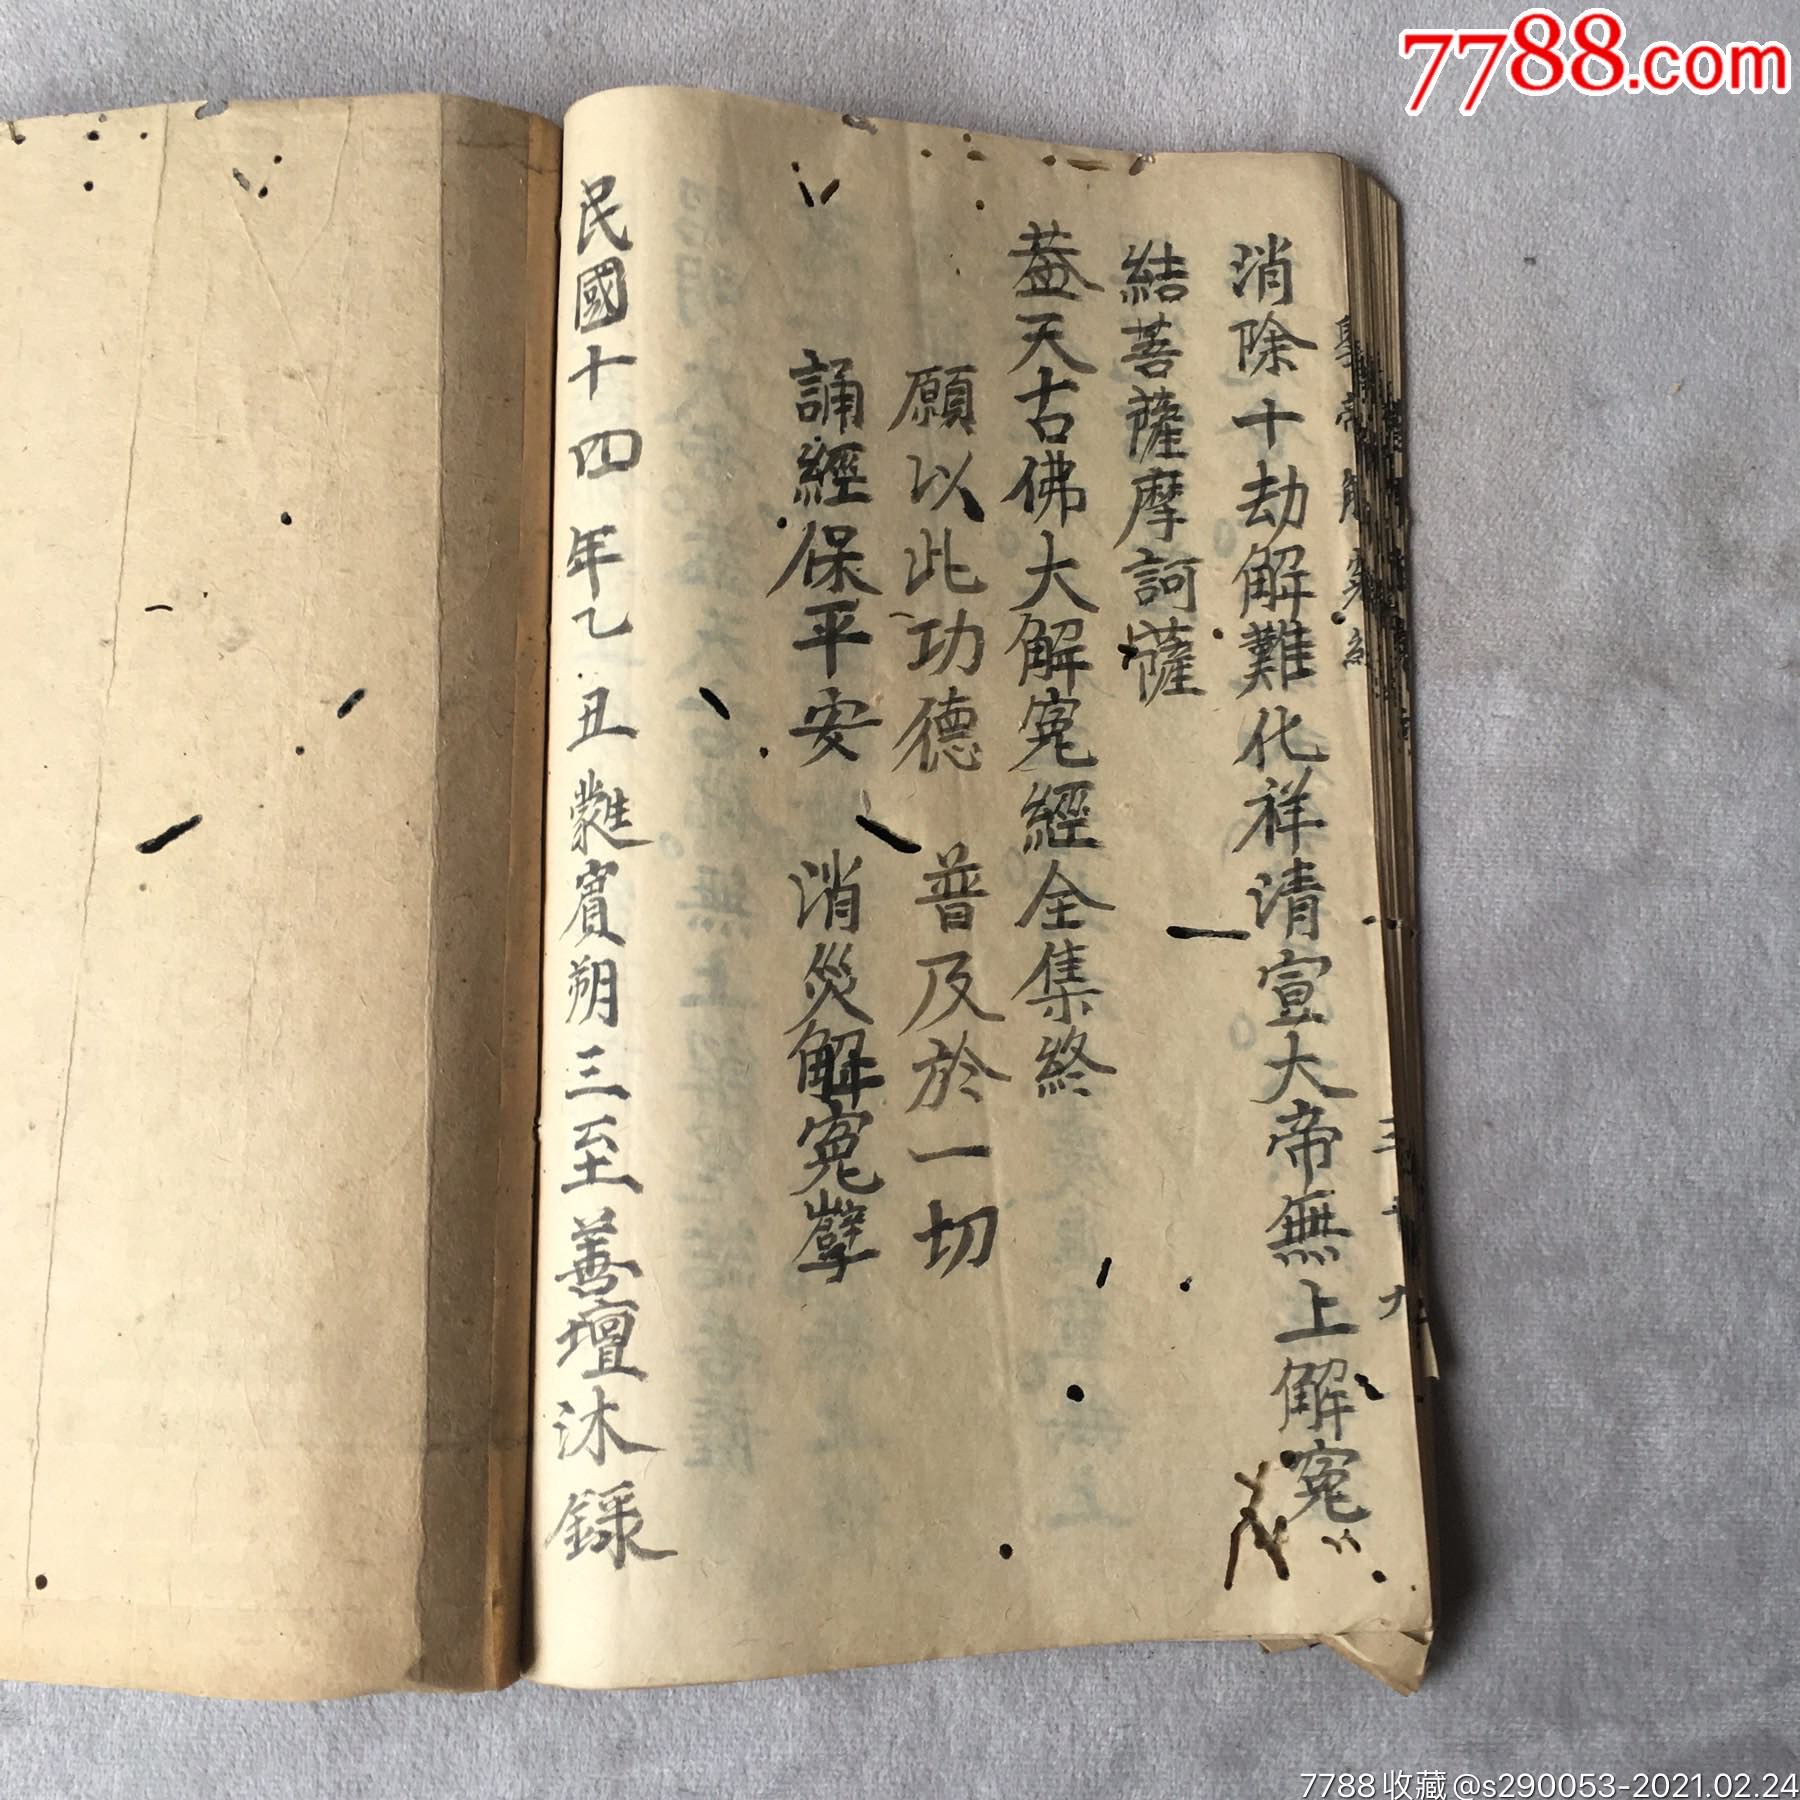 7788.com
消除十劫解難化祥清宣大帝無上解寃
結菩薩摩訶薩
蓋天古佛大解寃經全集終
願以此功德 普及於一切
誦經保平安 消災解寃孽
民國十四年乙丑蕤賓朔三至善壇沐錄
7788收藏@s290053-2021.02.24